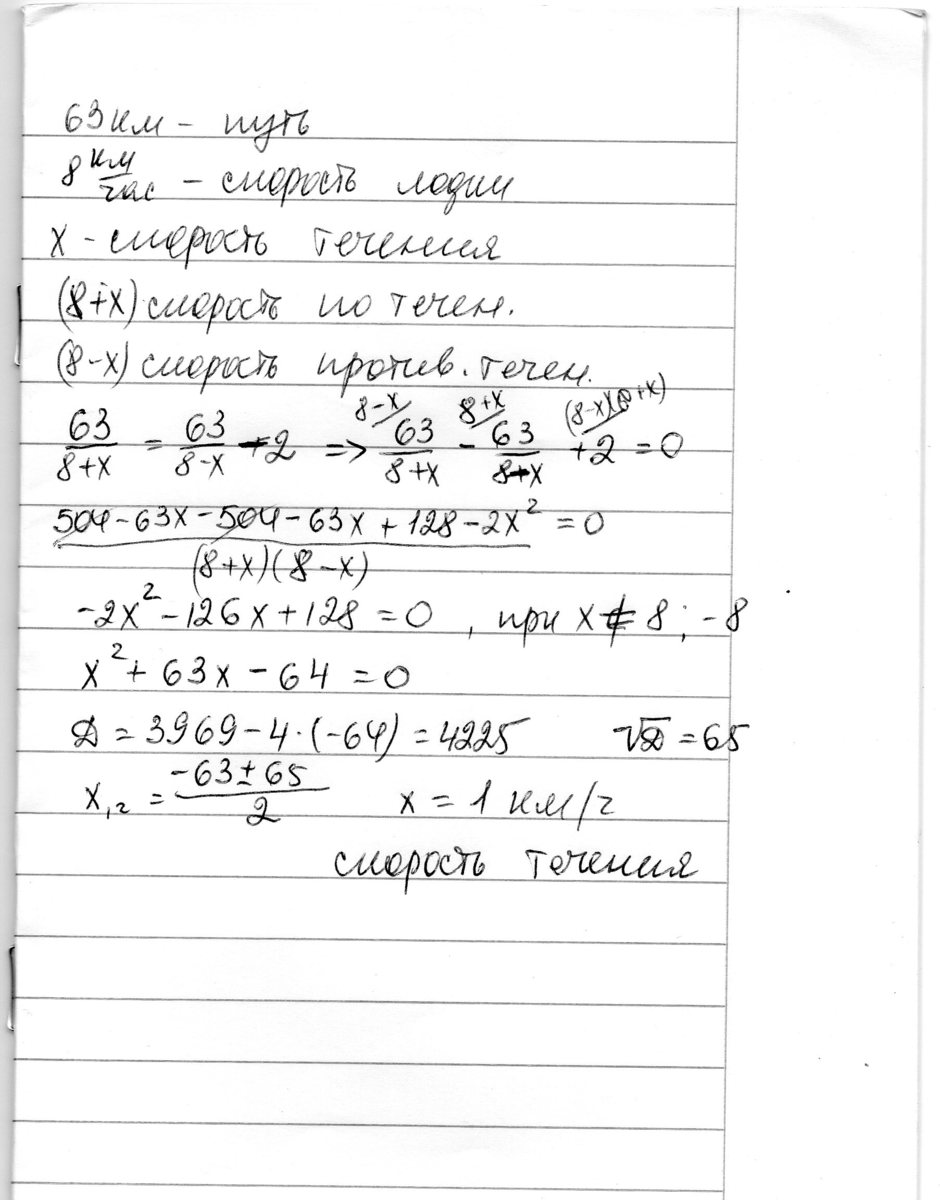 63 км – путь
8 км/час – скорость лодки
x – скорость течения
(8+x) скорость по течен.
(8-x) скорость против. течен.
8-x/ 8+x/ (8-x)(8+x)/
63/(8+x) = 63/(8-x) - 2 => 63/(8+x) - 63/(8+x) + 2 = 0
(504 - 63x - 504 - 63x + 128 - 2x²)/((8+x)(8-x)) = 0
-2x² - 126x + 128 = 0 , при x ≠ 8 ; -8
x² + 63x - 64 = 0
D = 3969 - 4·(-64) = 4225 √D = 65
x₁,₂ = (-63 ± 65)/2 x = 1 км/ч
скорость течения